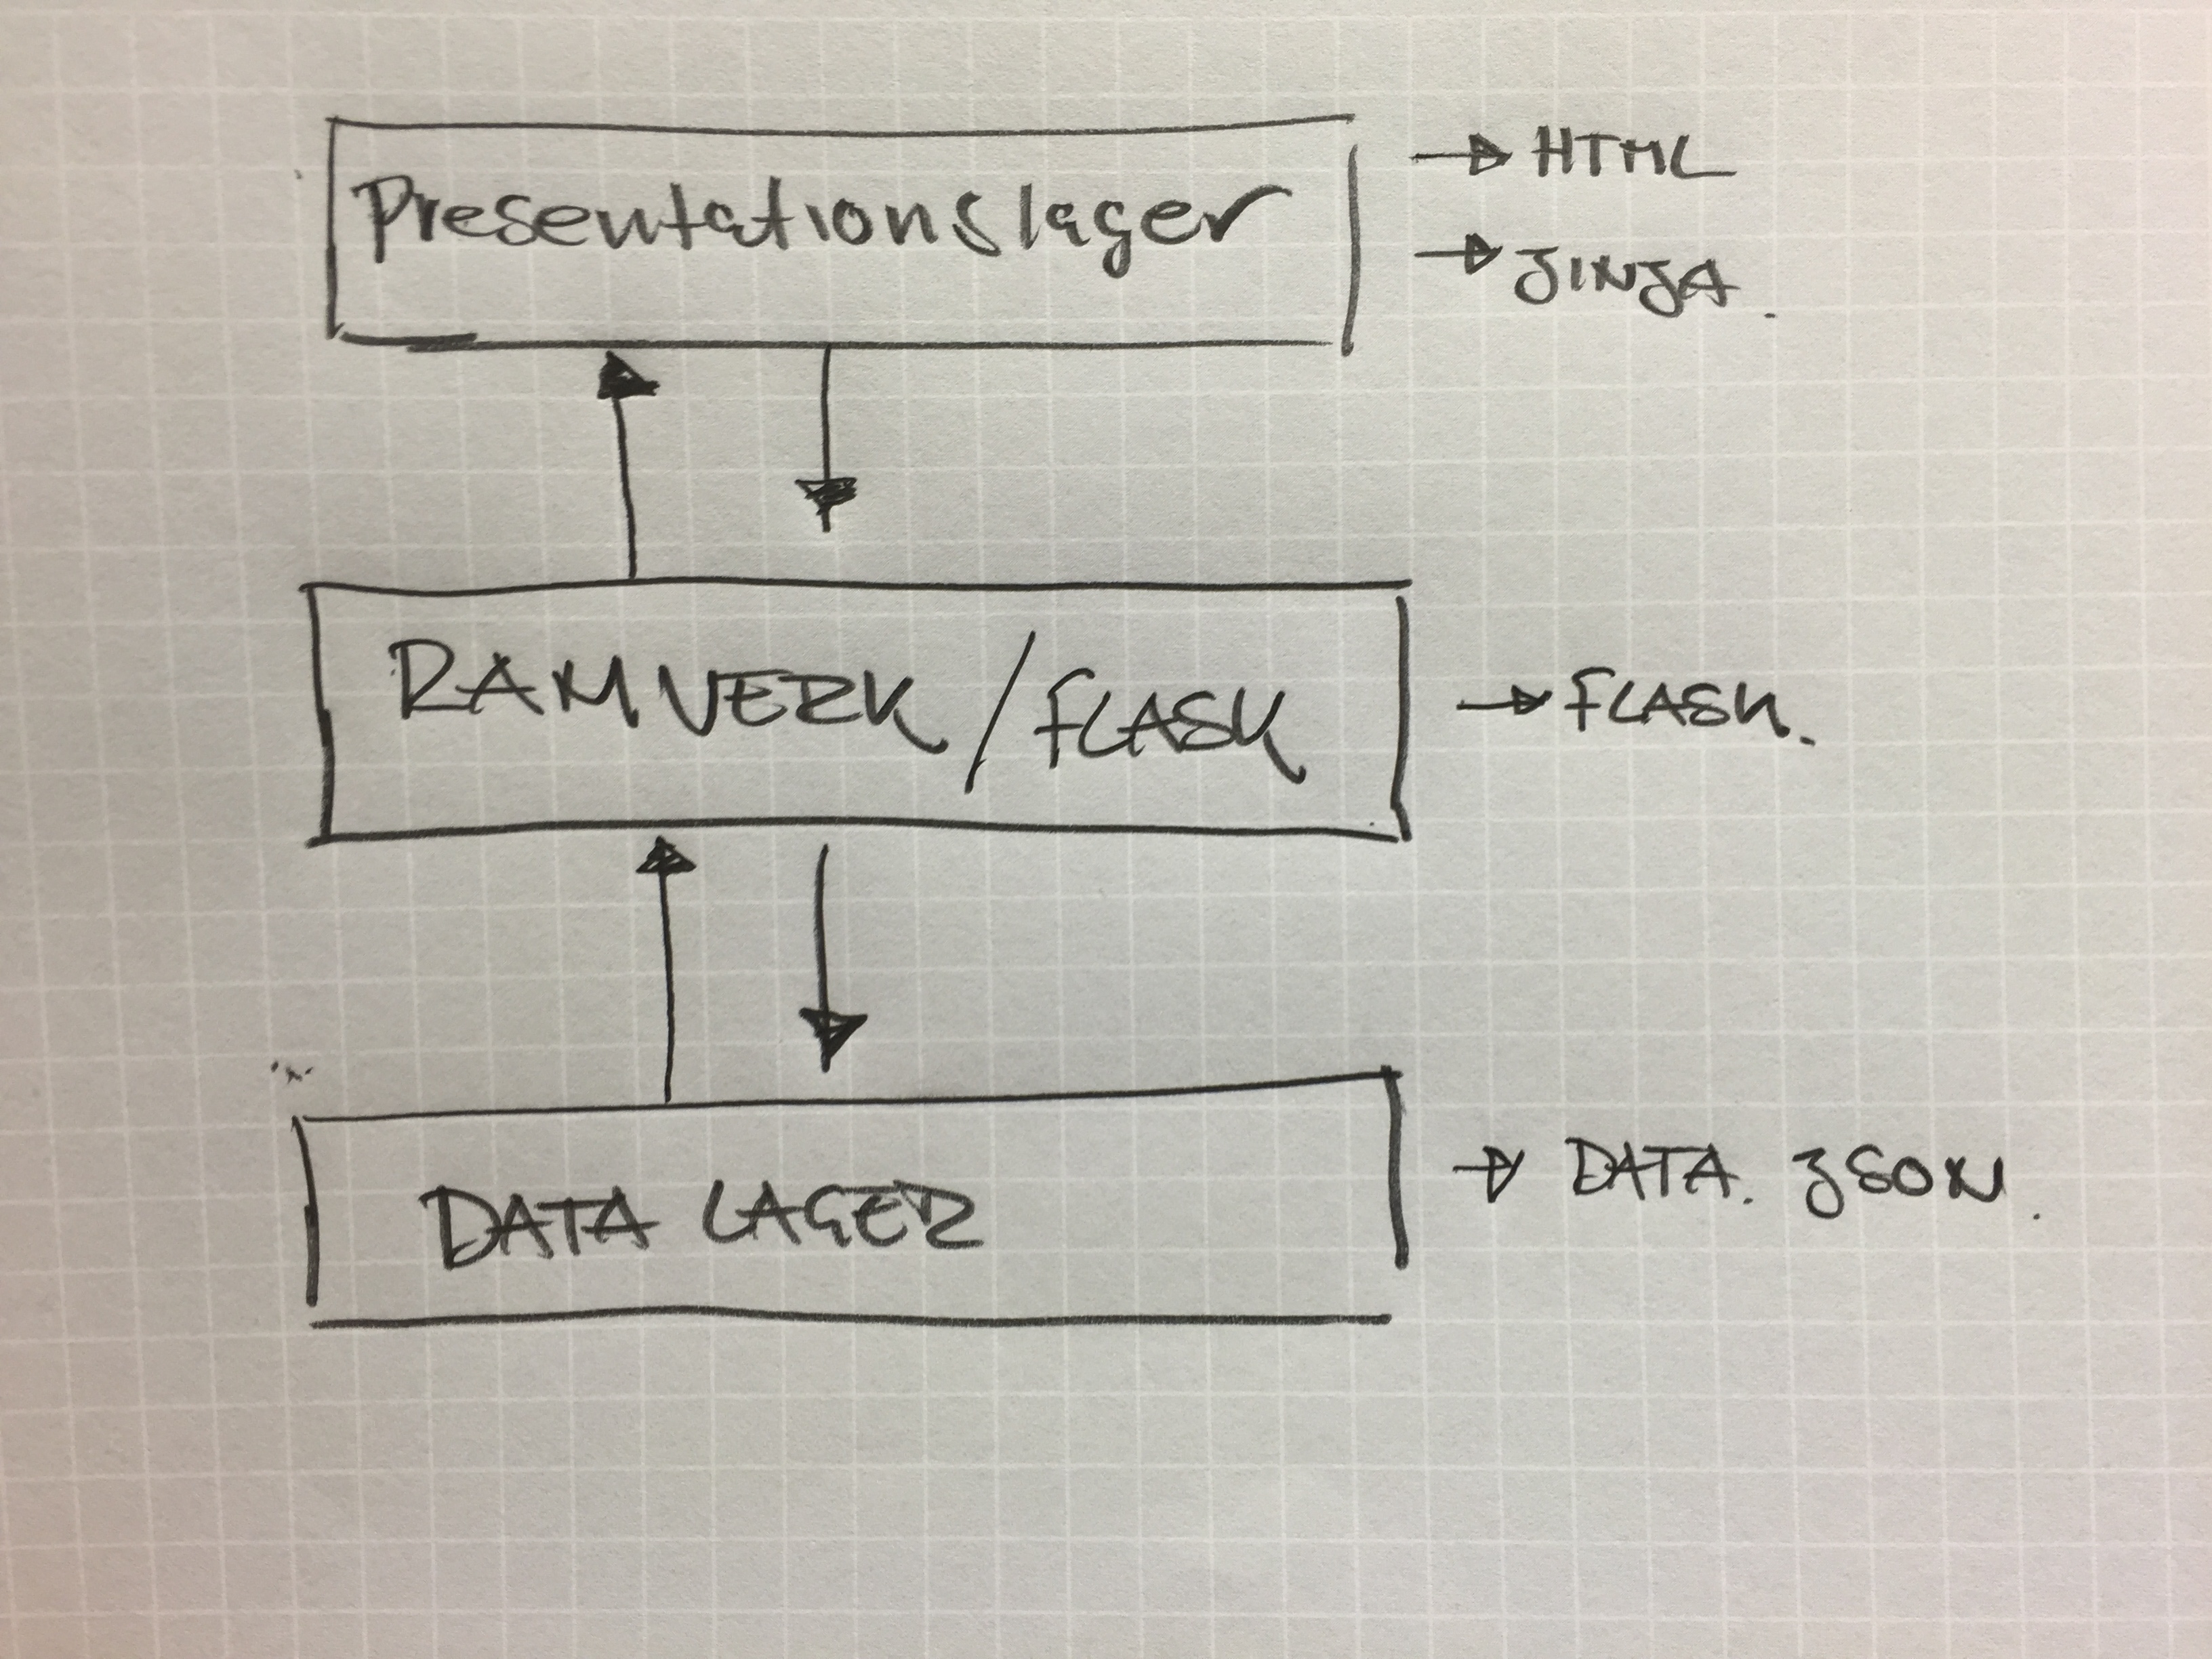 Presentationslager
→ HTML
→ JINJA.
RAMVERK / FLASK
→ FLASK.
DATA LAGER
→ DATA. JSON.